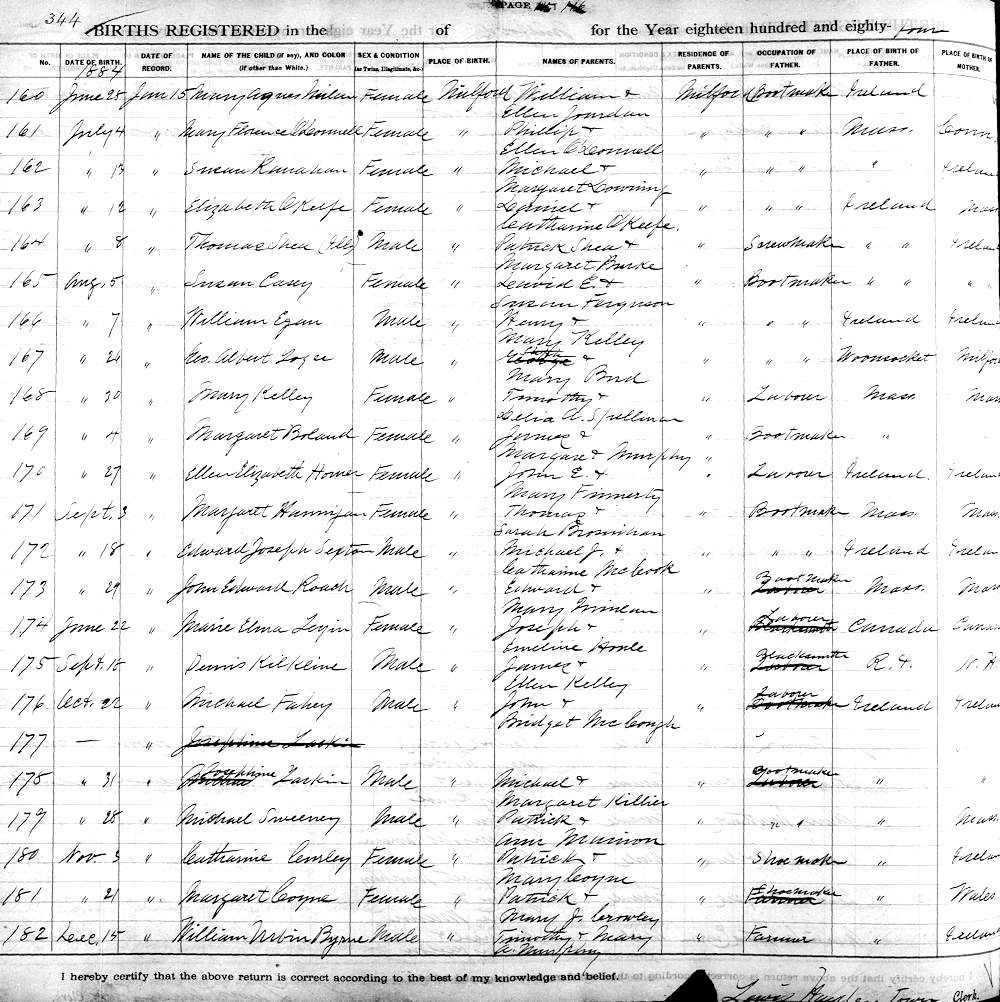 344
PAGE
BIRTHS REGISTERED in the of for the Year eighteen hundred and eighty-four
No. DATE OF BIRTH. DATE OF RECORD. NAME OF THE CHILD (if any), AND COLOR (if other than White.) SEX & CONDITION (as Twins, Illegitimate, &c.) PLACE OF BIRTH. NAMES OF PARENTS. RESIDENCE OF PARENTS. OCCUPATION OF FATHER. PLACE OF BIRTH OF FATHER. PLACE OF BIRTH OF MOTHER.
1884
160 June 28 Jan 15 Mary Agnes Female Milford William & Milford Bootmaker Ireland
Ellen Jourdan
161 July 4 " Mary Florence O'Connell Female " Phillip & " " " Mass. Conn.
Ellen O'Connell
162 " 13 " Susan Ranahan Female " Michael & " " " " Ireland
Margaret Downing
163 " 12 " Elizabeth O'Keefe Female " Daniel & " " " Ireland Mass
Catharine O'Keefe.
164 " 8 " Thomas Shea Male " Patrick Shea & " Screwmaker " " Ireland
Margaret Burke
165 Aug. 5 " Susan Casey Female " David E. & " Bootmaker " " " "
Susan Ferguson
166 " 7 " William Egan Male " Henry & " " " Ireland Ireland
Mary Kelley
167 " 26 " Geo. Albert Male " George & " " " Woonsocket Milford
Mary Bird
168 " 30 " Mary Kelley Female " Timothy & " Laborer Mass. Mass
Celia A. Spellman
169 " 4 " Margaret Boland Female " James & " Bootmaker "
Margaret Murphy
170 " 27 " Ellen Elizabeth Female " John E. & " Laborer Ireland. Ireland
Mary Finnerty
171 Sept. 3 " Margaret Hannigan Female " Thomas & " Bootmaker Mass. Mass.
Sarah Brosnihan
172 " 18 " Edward Joseph Sexton Male " Michael J. & " " " Ireland Ireland
Catharine McCook
173 " 29 " Male " Edward & " Bootmaker Laborer Mass. Mass
John Edward Roach
Mary
174 June 22 " Marie Elma Female " Joseph & " Laborer Blacksmith Canada Canada
Emeline Houle
175 Sept. 18 " Dennis Kilkline Male " James & " Blacksmith Laborer R.I. N.H
Ellen Kelley
176 Oct. 22 " Michael Fahey Male " John & " Laborer Bootmaker Ireland Ireland
Bridget McGough
177 — " Josephine Larkin
178 " 31 " Josephine Larkin Male " Michael & " Bootmaker Laborer " "
Margaret Killier
179 " 28 " Michael Sweeney Male " Patrick & " " " " Mass.
Ann
180 Nov. 3 " Catharine Female " Patrick & " Shoemaker " Ireland
Mary Coyne
181 " 21 " Margaret Coyne Female " Patrick & " Shoemaker Farmer " Wales
Mary J. Crowley
182 Dec. 15 " William Urbin Byrne Male " Timothy & Mary " Farmer " Ireland
A. Murphy
I hereby certify that the above return is correct according to the best of my knowledge and belief.
Lewis Town Clerk.